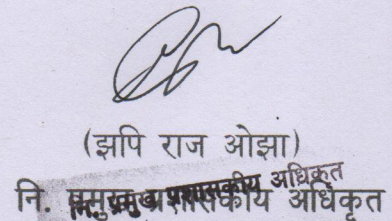 (झपि राज ओझा)
नि. प्रमुख प्रशासकीय अधिकृत
नि. प्रमुख प्रशासकीय अधिकृत